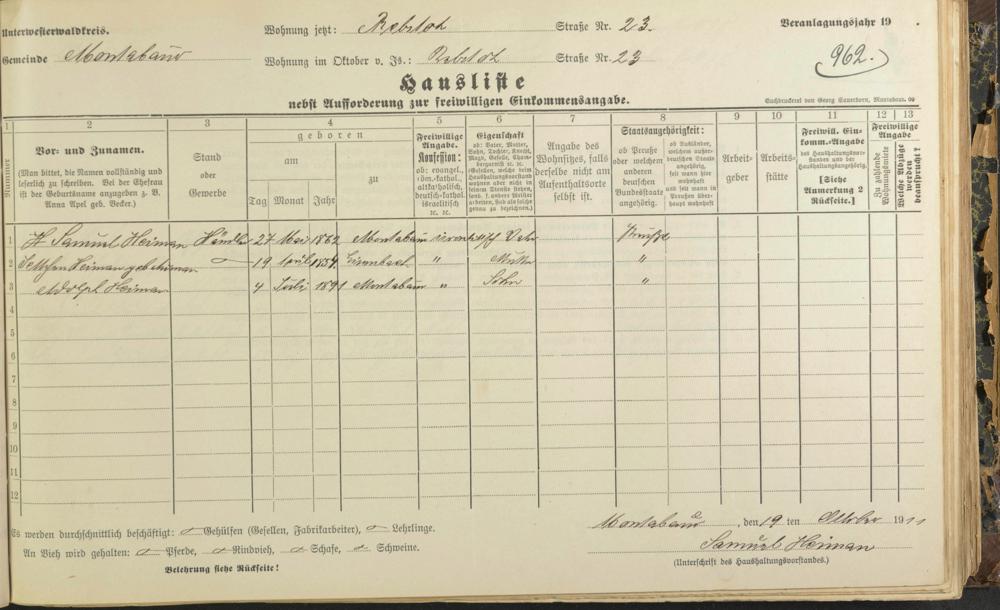 Unterwesterwaldkreis. Wohnung jetzt: Rebstok Straße Nr. 23. Veranlagungsjahr 19 .
Gemeinde Montabaur Wohnung im Oktober v. Js.: Rebstok Straße Nr. 23 962.
Hausliste
nebst Aufforderung zur freiwilligen Einkommensangabe.
Buchdruckerei von Georg Sauerborn, Montabaur.
1 2 3 4 5 6 7 8 9 10 11 12 13
Nummer
Vor- und Zunamen.
(Man bittet, die Namen vollständig und
leserlich zu schreiben. Bei der Ehefrau
ist der Geburtsname anzugeben z. B.
Anna Apel geb. Becker.)
Stand
oder
Gewerbe
geboren
am
zu
Tag Monat Jahr
Freiwillige
Angabe.
Konfession:
ob: evangel.,
röm.-kathol.,
altkatholisch,
deutsch-kathol.
israelitisch
ꝛc. ꝛc.
Eigenschaft
ob: Vater, Mutter,
Sohn, Tochter, Knecht,
Magd, Geselle, Cham-
bergarnist ꝛc. ꝛc.
Angabe des
Wohnsitzes, falls
derselbe nicht am
Aufenthaltsorte
selbst ist.
Staatsangehörigkeit:
ob Preuße
oder welchem
anderen
deutschen
Bundesstaate
angehörig.
ob Ausländer,
welchem außer-
deutschen Staate
angehörig,
seit wann hier
wohnhaft
und seit wann in
Preußen über-
haupt wohnhaft
Arbeit-
geber
Arbeits-
stätte
Freiwill. Ein-
komm.-Angabe
des Haushaltungsvor-
standes und der
Haushaltungsangehörig.
[Siehe
Anmerkung 2
Rückseite.]
Freiwillige
Angabe
Zu zahlende
Wohnungsmiete
Welche Abzüge
werden
beansprucht?
1 H Samuel Heiman Händler 27 Mai 1862 Montabaur Vater Preuße
2 19 1854 " Mutter "
3 Adolph Heiman 4 Juli 1891 Montabaur " Sohn "
4
5
6
7
8
9
10
11
12
Es werden durchschnittlich beschäftigt: Gehülfen (Gesellen, Fabrikarbeiter), Lehrlinge.
An Vieh wird gehalten: Pferde, Rindvieh, Schafe, Schweine.
Belehrung siehe Rückseite!
Montabaur, den 19 ten Oktober 1911
Samuel Heiman
(Unterschrift des Haushaltungsvorstandes.)